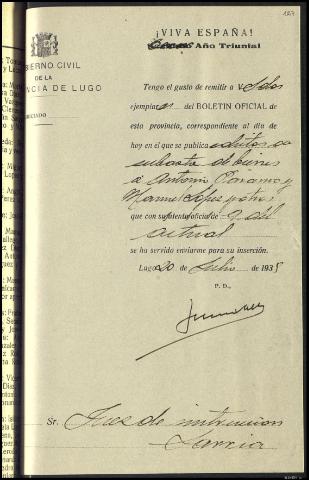 127
¡VIVA ESPAÑA!
Año Triunfal
BIERNO CIVIL
DE LA
NCIA DE LUGO
GOCIADO
Tengo el gusto de remitir a V. S. dos
ejemplar es del BOLETIN OFICIAL de
esta provincia, correspondiente al día de
hoy en el que se publica edictos de
subasta de bienes
a Antonio Páramo y
Manuel López y otros
que con su atento oficio de 9 del
actual
se ha servido enviarme para su inserción.
Lugo 20 de Julio de 1938
P. D.,
Sr. Juez de instruccion
Sarria